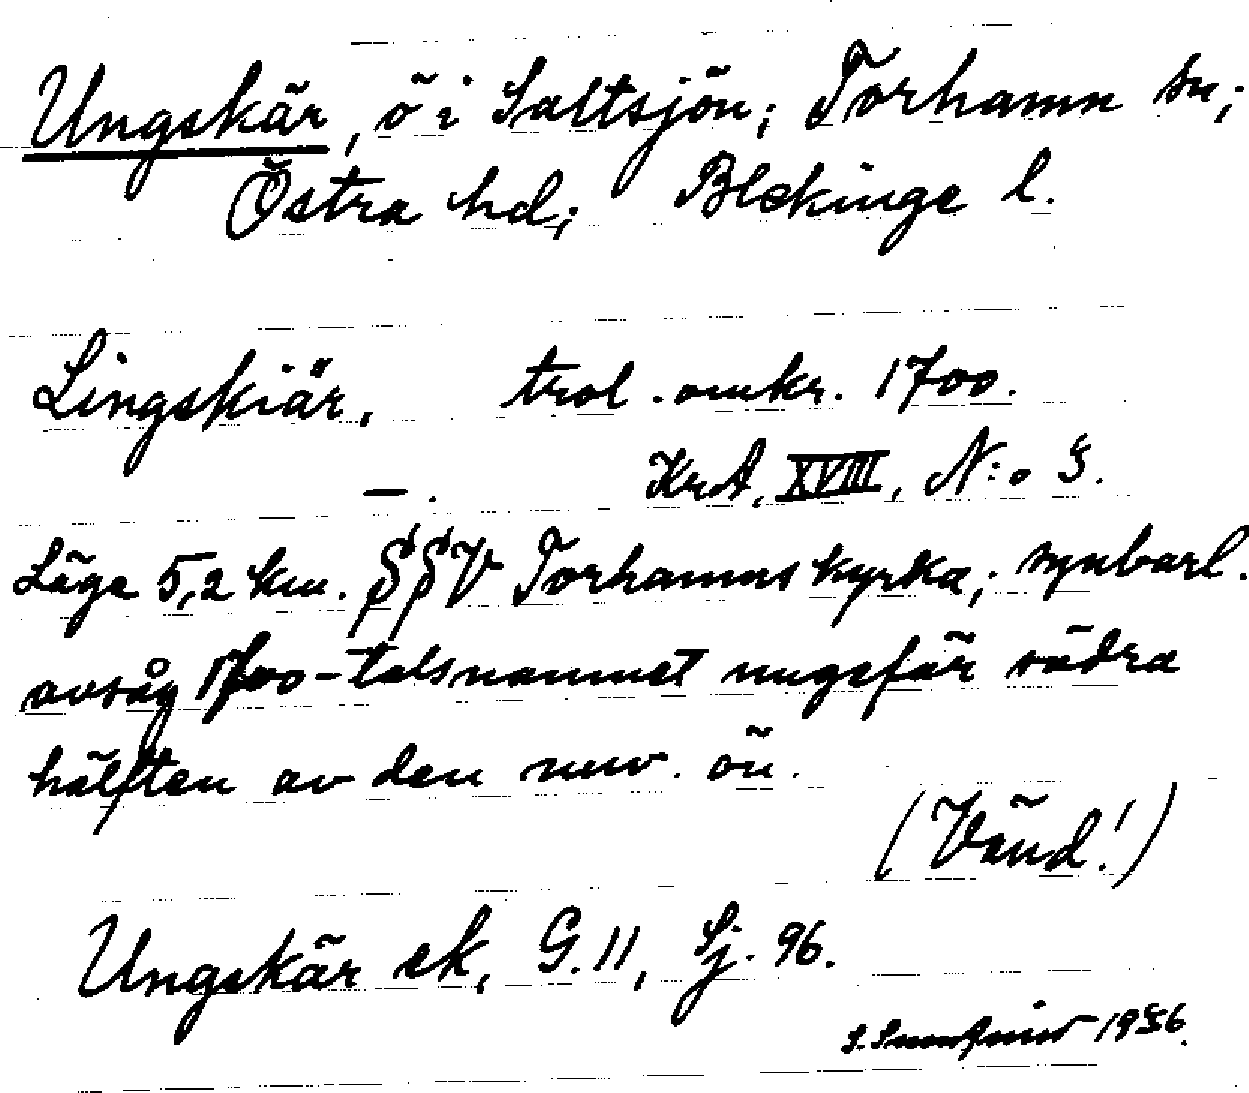 Ungskär, ö i Saltsjön; Torhamn sn;
Östra hd; Blekinge l.
Lingskiär. trol. omkr. 1700.
—. KrA, XVIII, N:o 3.
Läge 5,2 km. SSV Torhamns kyrka; synbarl.
avsåg 1700-talsnamnet ungefär södra
hälften av den nuv. ön.
(Vänd!)
Ungskär ek, G. 11, Sj. 96.
1956.